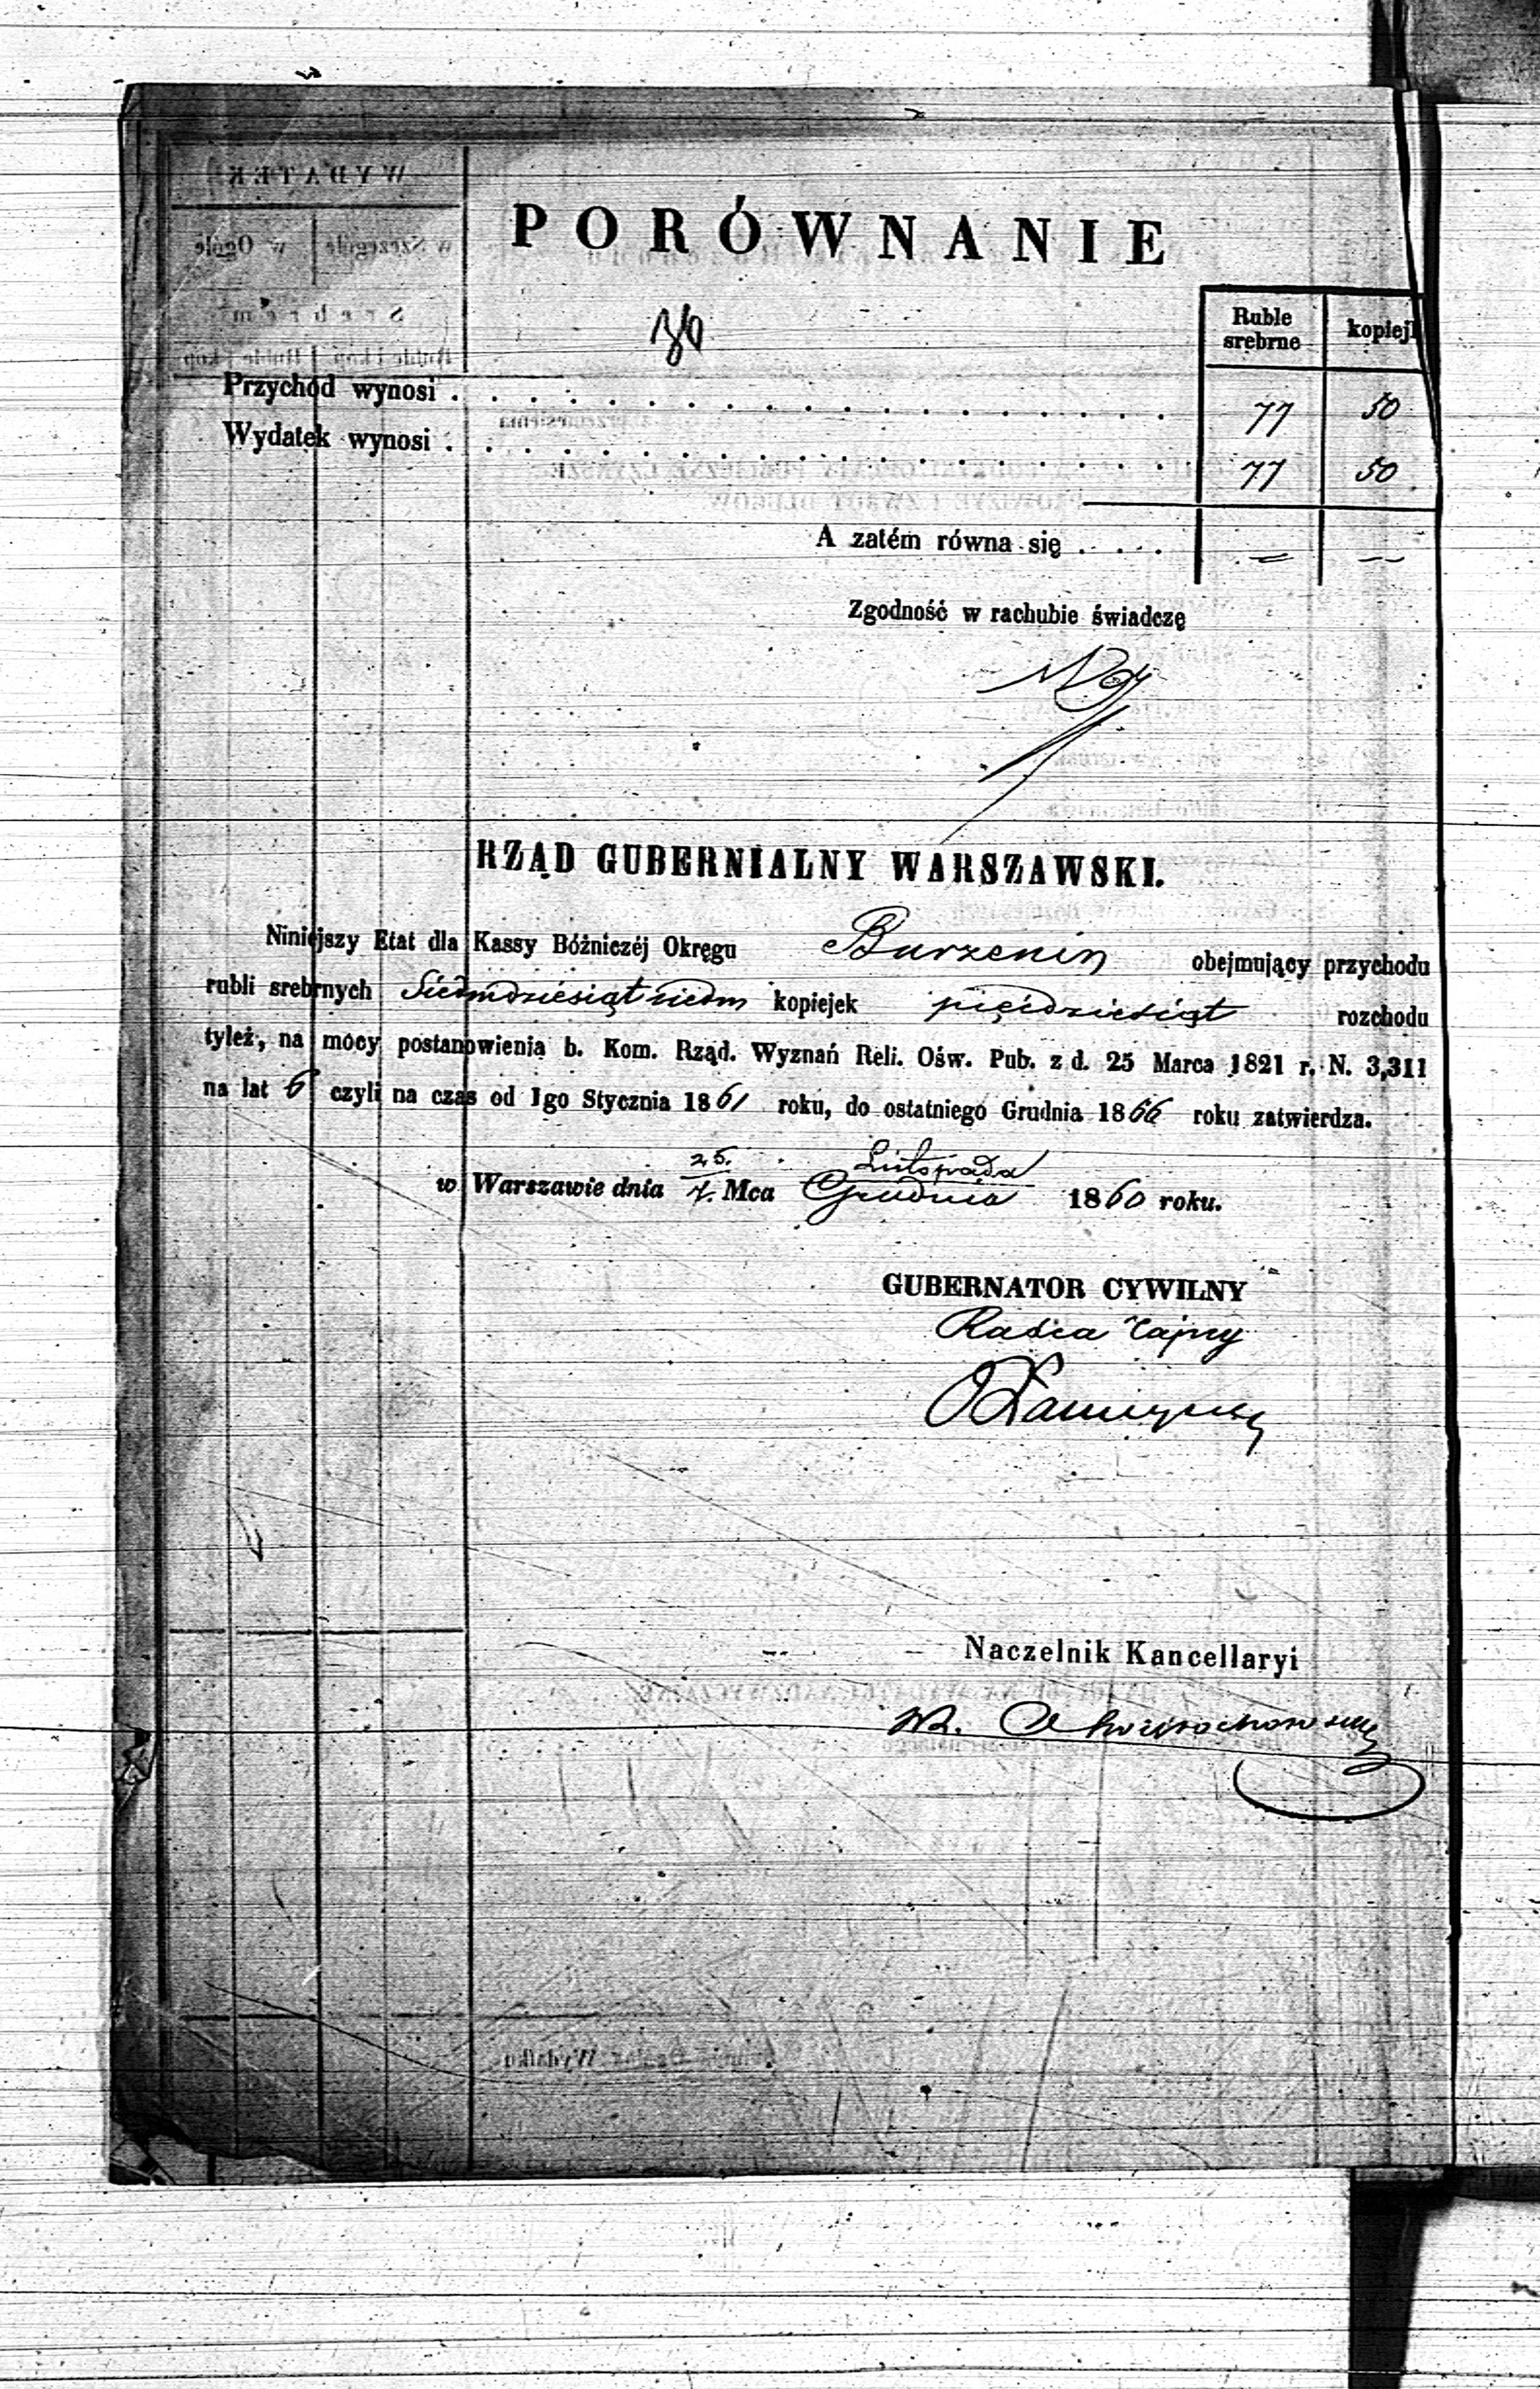 PORÓWNANIE
Ruble srebrne kopiej
Przychód wynosi . . . . . 77 50
Wydatek wynosi . . . . . 77 50
A zatém równa się . . . . = —
Zgodność w rachubie świadczę
RZĄD GUBERNIALNY WARSZAWSKI.
Niniejszy Etat dla Kassy Bóżniczéj Okręgu Burzenin obejmujący przychodu
rubli srebrnych Siedmdziesiąt siedm kopiejek pięćdziesiąt rozchodu
tyleż, na mocy postanowienia b. Kom. Rząd. Wyznań Reli. Ośw. Pub. z d. 25 Marca 1821 r. N. 3,311
na lat 6 czyli na czas od 1go Stycznia 1861 roku, do ostatniego Grudnia 1866 roku zatwierdza.
25. Listopada
w Warszawie dnia 7. Mca Grudnia 1860 roku.
GUBERNATOR CYWILNY
Radca Tajny
Naczelnik Kancellaryi